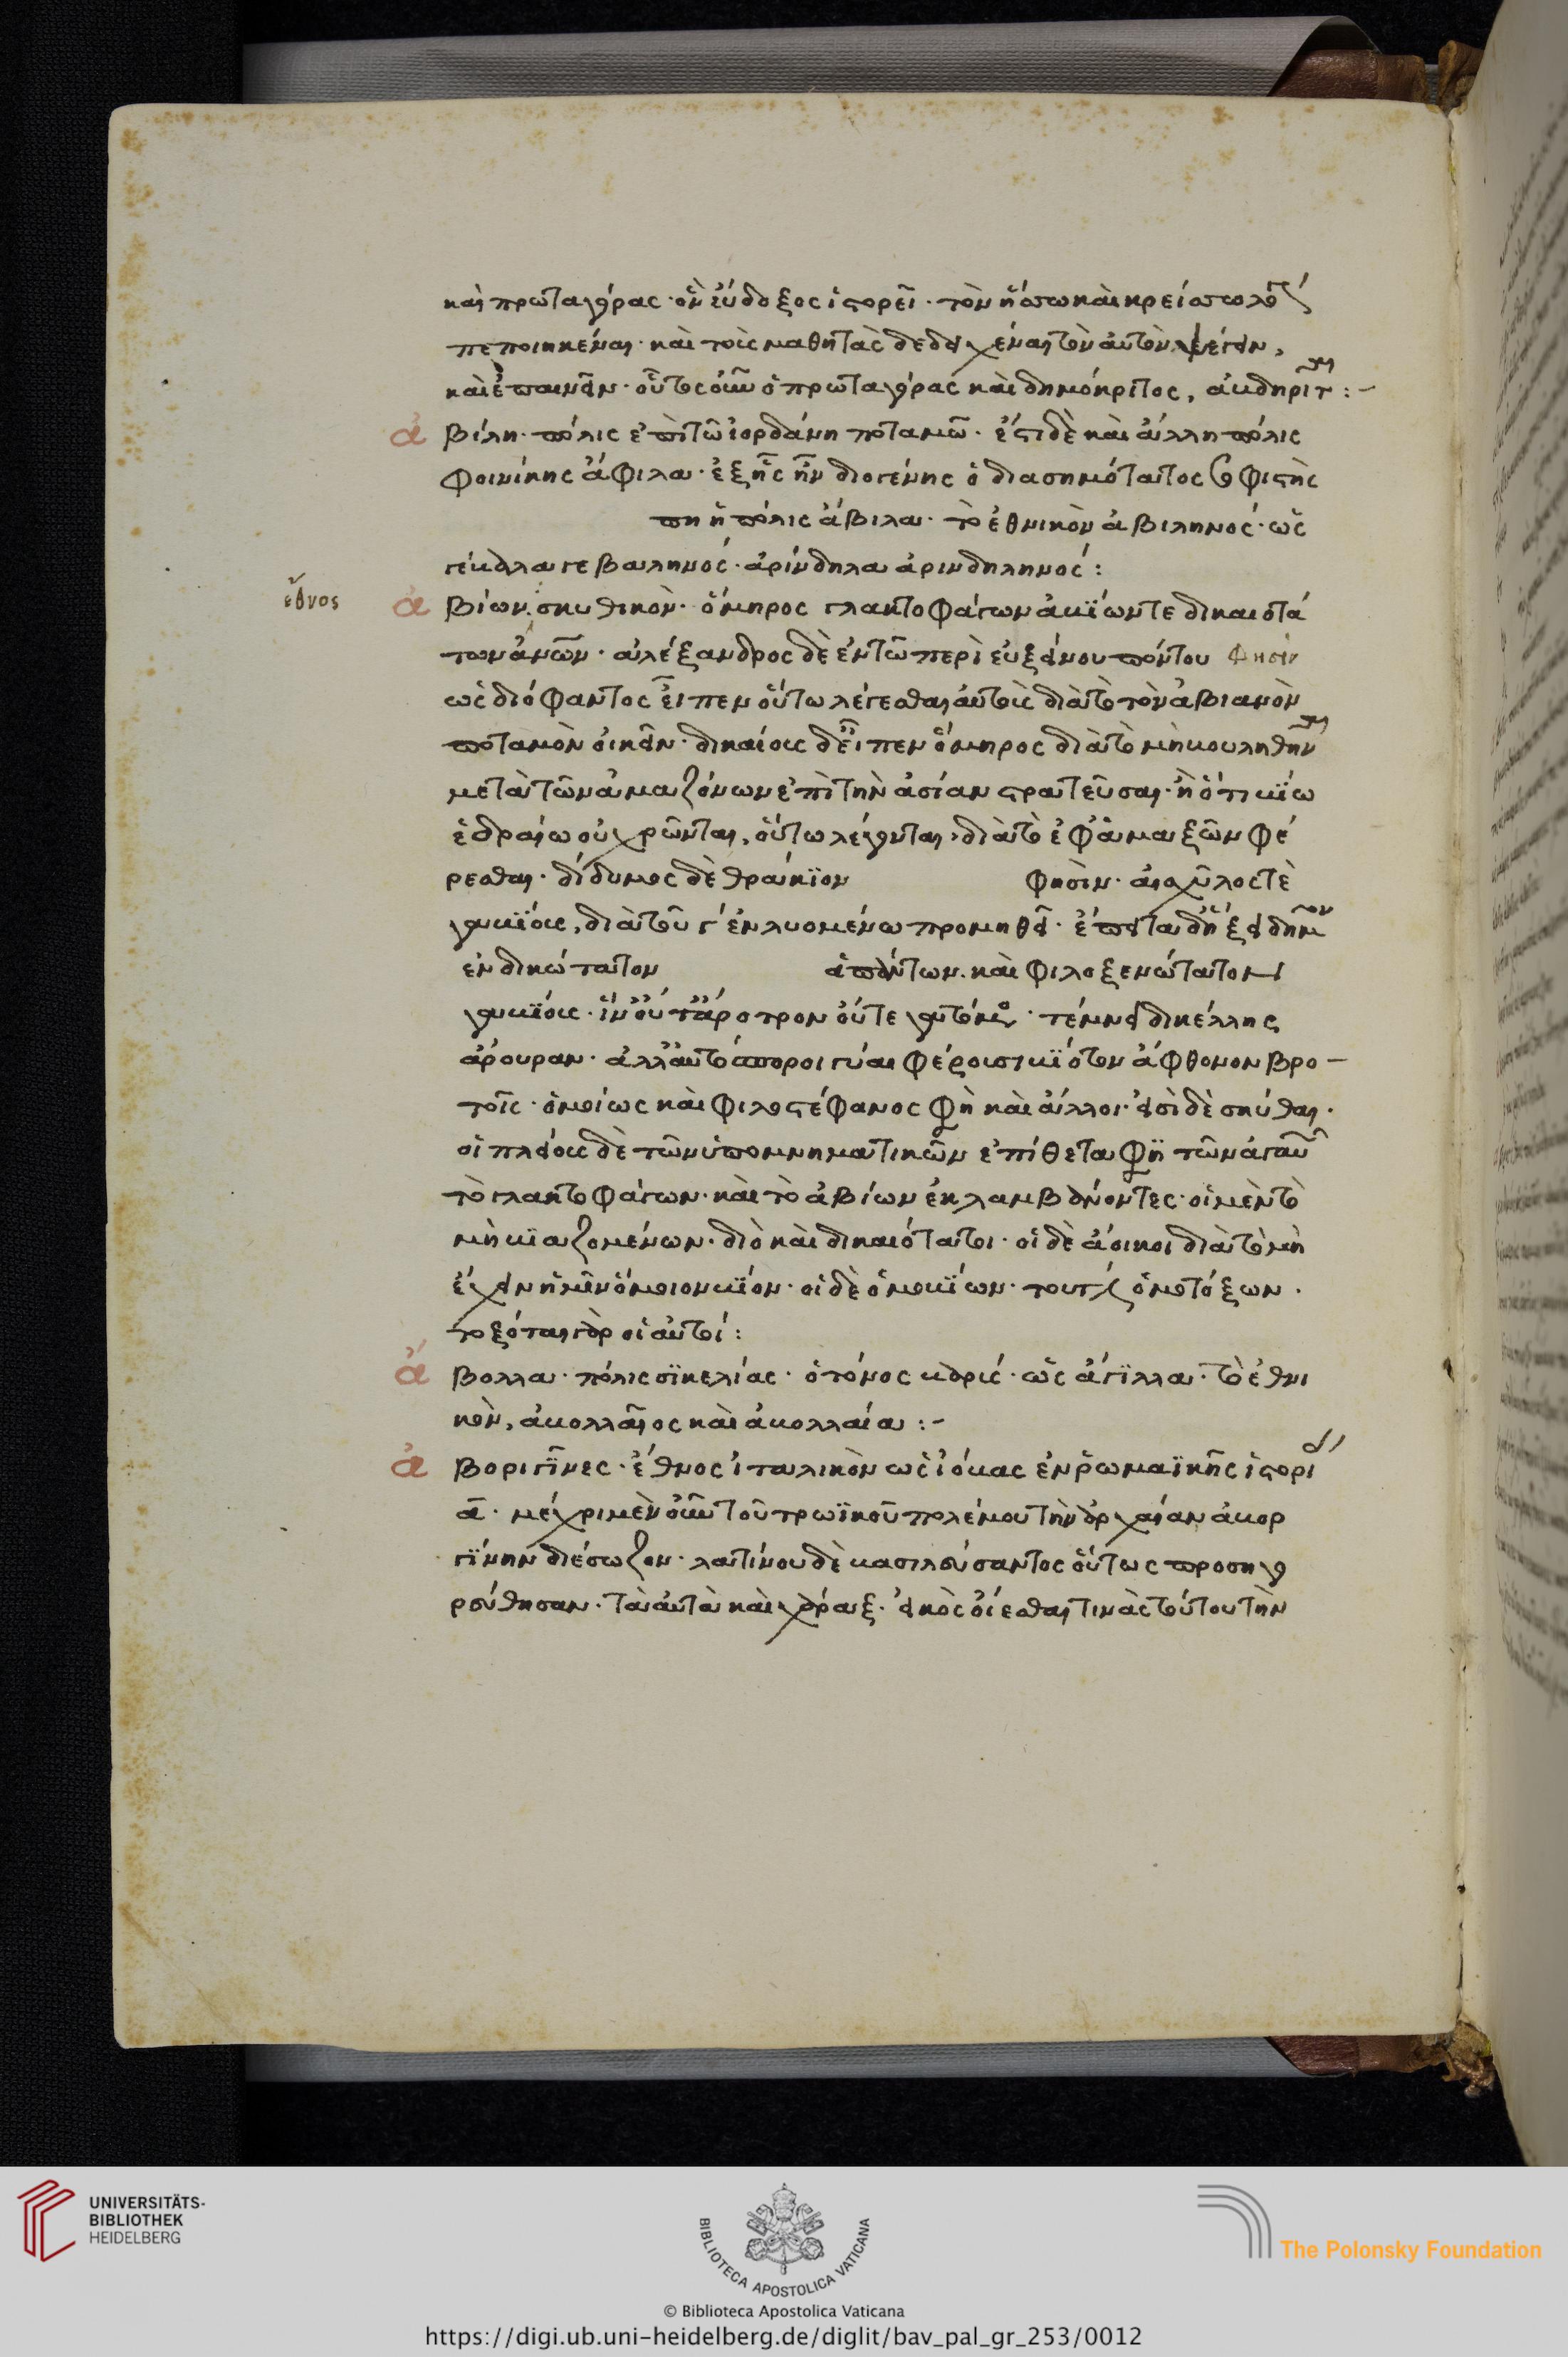 καὶ πρωταγόρας · ὃν εὔδοξος ἱστορεῖ · τὸν ἥσσω καὶ κρείσσω λό
πεποιηκέναι · καὶ τοὺς μαθητὰς δεδειχέναι τὸν αὐτὸν ψέγειν,
καὶ ἐπαινεῖν · οὗτος οὖν ὁ πρωταγόρας καὶ δημόκριτος, ἀβδηρῖται :-
ἀβίλη · πόλις ἐπὶ τῶ ἰορδάνη ποταμῶ · ἔστι δὲ καὶ ἄλλη πόλις
φοινίκης ἄφιλα · ἐξ ἧς ἦν διογένης ὁ διασημότατος σοφιστὴς
πη ἡ πόλις ἄβιλα · τὸ ἐθνικὸν ἀβιληνός · ὡς
γέβαλα γεβαληνός · ἀρίνδηλα ἀρινδηληνός :
ἔθνος
ἀβίων · σκυθικὸν · ὅμηρος γλακτοφάγων ἀβίων τε δικαιοτά
των ἀνων · ἀλέξανδρος δὲ ἐν τῶ περὶ εὐξείνου πόντου φησὶν
ὡς διόφαντος εἶπεν οὕτω λέγεσθαι αὐτοὺς διὰ τὸ τὸν ἀβιανὸν
ποταμὸν οἰκεῖν · δικαίους δὲ εἶπεν ὅμηρος διὰ τὸ μὴ βουληθῆναι
μετὰ τῶν ἀμαζόνων ἐπὶ τὴν ἀσίαν στρατεῦσαι · ἢ ὅτι βίω
ἑδραίω οὐ χρῶνται, οὕτω λέγονται, διὰ τὸ ἐφ' ἁμαξῶν φέ
ρεσθαι · δίδυμος δὲ θράκιον φησὶν · αἰσχύλος τὲ
γαβίους, διὰ τοῦ γ ἐν λυομένω προμηθεῖ · ἔπειτα δ' ἥξει δῆμον
ἐνδικώτατον ἁπάντων · καὶ φιλοξενώτατον
γαβίους · ἵν' οὔτ' ἄροτρον οὔτε γατόμος · τέμνει δικέλλης
ἄρουραν · ἀλλ' αὐτόσποροι γύαι φέρουσι βίοτον ἄφθονον βρο -
τοῖς · ὁμοίως καὶ φιλοστέφανος φη καὶ ἄλλοι · εἰσὶ δὲ σκύθαι ·
οἱ πλείους δὲ τῶν ὑπομνηματικῶν ἐπίθετα φη τῶν ἀγαυ
τὸ γλακτοφάγων · καὶ τὸ ἀβίων ἐκλαμβάνοντες · οἱ μὲν τὸ
μὴ βιαζομένων · διὸ καὶ δικαιότατοι · οἱ δὲ ἄοικοι διὰ τὸ μὴ
ἔχειν ἡμῖν ὅμοιον βίον · οἱ δὲ ὁμοβίων · τουτέστιν ὁμοτόξων ·
τοξόται γὰρ οἱ αὐτοί :
ἄβολλα · πόλις σικελίας · ὁ τόνος βαρύς · ὡς ἄγιλλα · τὸ ἐθνι
κὸν, ἀβολλαῖος καὶ ἀβολλαία :-
ἀβοριγῖνες · ἔθνος ἰταλικὸν ὡς ἰόβας ἐν ῥωμαϊκῆς ἱστορί
α · μέχρι μὲν οὖν τοῦ τρωϊκοῦ πολέμου τὴν ἀρχαίαν ἀβορ
γίνην διέσωζον · λατίνου δὲ βασιλεύσαντος οὕτως προσηγο
ρεύθησαν · τὰ αὐτὰ καὶ χάραξ · εἰκὸς οἴεσθαι τινὰς τούτου τὴν
UNIVERSITÄTS-
BIBLIOTHEK
HEIDELBERG
BIBLIOTECA APOSTOLICA VATICANA
The Polonsky Foundation
© Biblioteca Apostolica Vaticana
https://digi.ub.uni-heidelberg.de/diglit/bav_pal_gr_253/0012